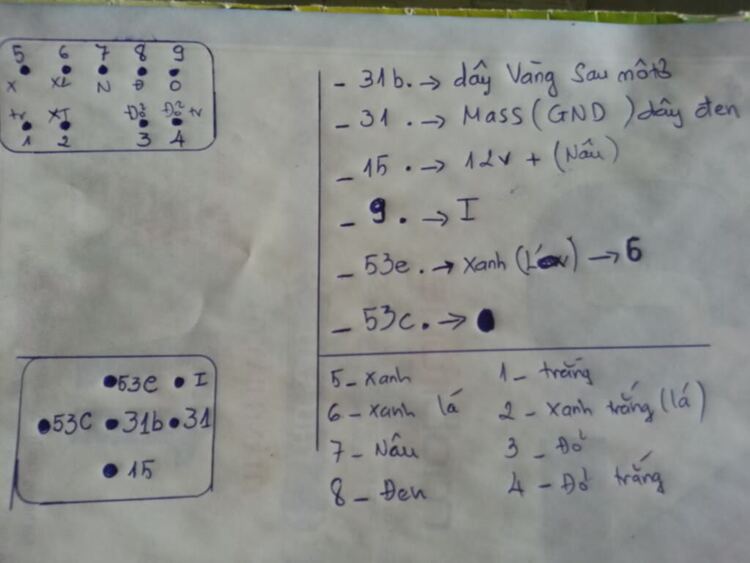 5 6 7 8 9
X XL N Đ O
tr XT Đỏ Đỏ tr
1 2 3 4
- 31b. → dây Vàng Sau môtơ
- 31. → Mass (GND) dây đen
- 15. → 12V + (Nâu)
- 9. → I
- 53e. → xanh → 6
- 53c. →
53e I
53C 31b 31
15
5 - xanh 1 - trắng
6 - xanh lá 2 - xanh trắng (lá)
7 - Nâu 3 - Đỏ
8 - Đen 4 - Đỏ trắng